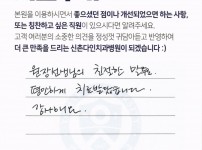 본원을 이용하시면서 좋으셨던 점이나 개선되었으면 하는 사항,
또는 칭찬하고 싶은 직원이 있으시다면 알려주세요.
고객 여러분의 소중한 의견을 정성껏 귀담아듣고 반영하여
더 큰 만족을 드리는 신촌다인치과병원이 되겠습니다 :)
원장선생님의 친절한 말투
편안하게 치료받았습니다
감사해요